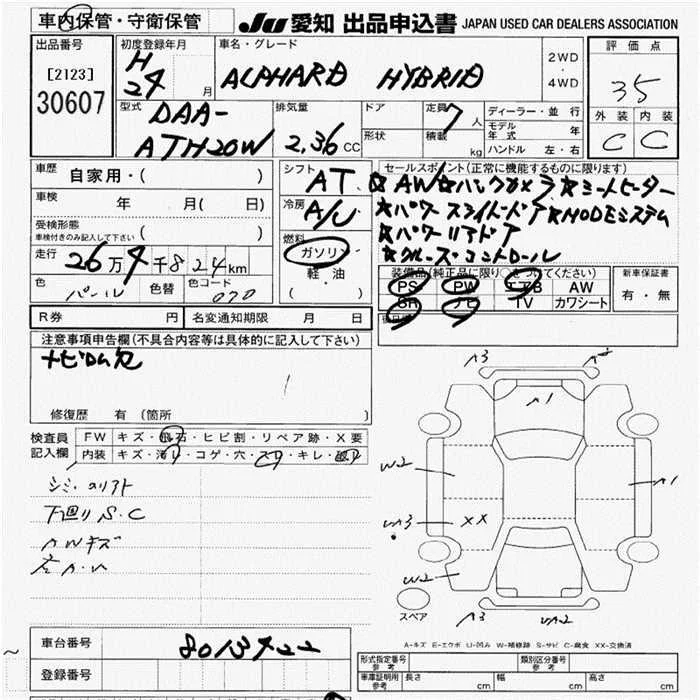 車内保管・守衛保管 JU 愛知 出品申込書 JAPAN USED CAR DEALERS ASSOCIATION
出品番号 初度登録年月 車名・グレード 2WD・4WD 評価点
[2123] 30607 H 24 月 ALPHARD HYBRID 35
型式 DAA-ATH20W 排気量 2.36 CC ドア 定員 7 人 ディーラー・並 行 外装 内装
形状 積載 kg モデル年式 年 C C
ハンドル 左・右
車歴 自家用・( ) シフト AT セールスポイント(正常に機能するものに限ります)
☆AW☆バックカメラ☆シートヒーター
車検 年 月( 日) 冷房 A/C
☆パワースライドドア☆MODEシステム
受検形態 車検付きのみ記入して下さい ( ) 燃料
☆パワーリアドア
走行 26万4千824km ガソリン
☆クルーズコントロール
色 パール 色替 色コード 070 軽・油 ( )
装備品(純正品に限り○をつけてください) 新車保証書
PS PW エアB AW 有・無
SR ナビ TV カワシート
R券 円 名変通知期限 月 日
注意事項申告欄(不具合内容等は具体的に記入して下さい)
ナビROM欠
修復歴 有 (箇所
検査員記入欄 FW キズ・飛石・ヒビ割・リペア跡・X要
内装 キズ・汚レ・コゲ・穴・スレ・キレ・破レ
下廻りS.C
AWキズ
A3
A1
W2
A1
XX
W2
スペア
A3
A-キズ E-エクボ U-凹み W-補修跡 S-サビ C-腐食 XX-交換済
車台番号 8013422
登録番号
形式指定番号 参考 類別区分番号 参考
車庫証明用 参考 長さ cm 幅 cm 高さ cm